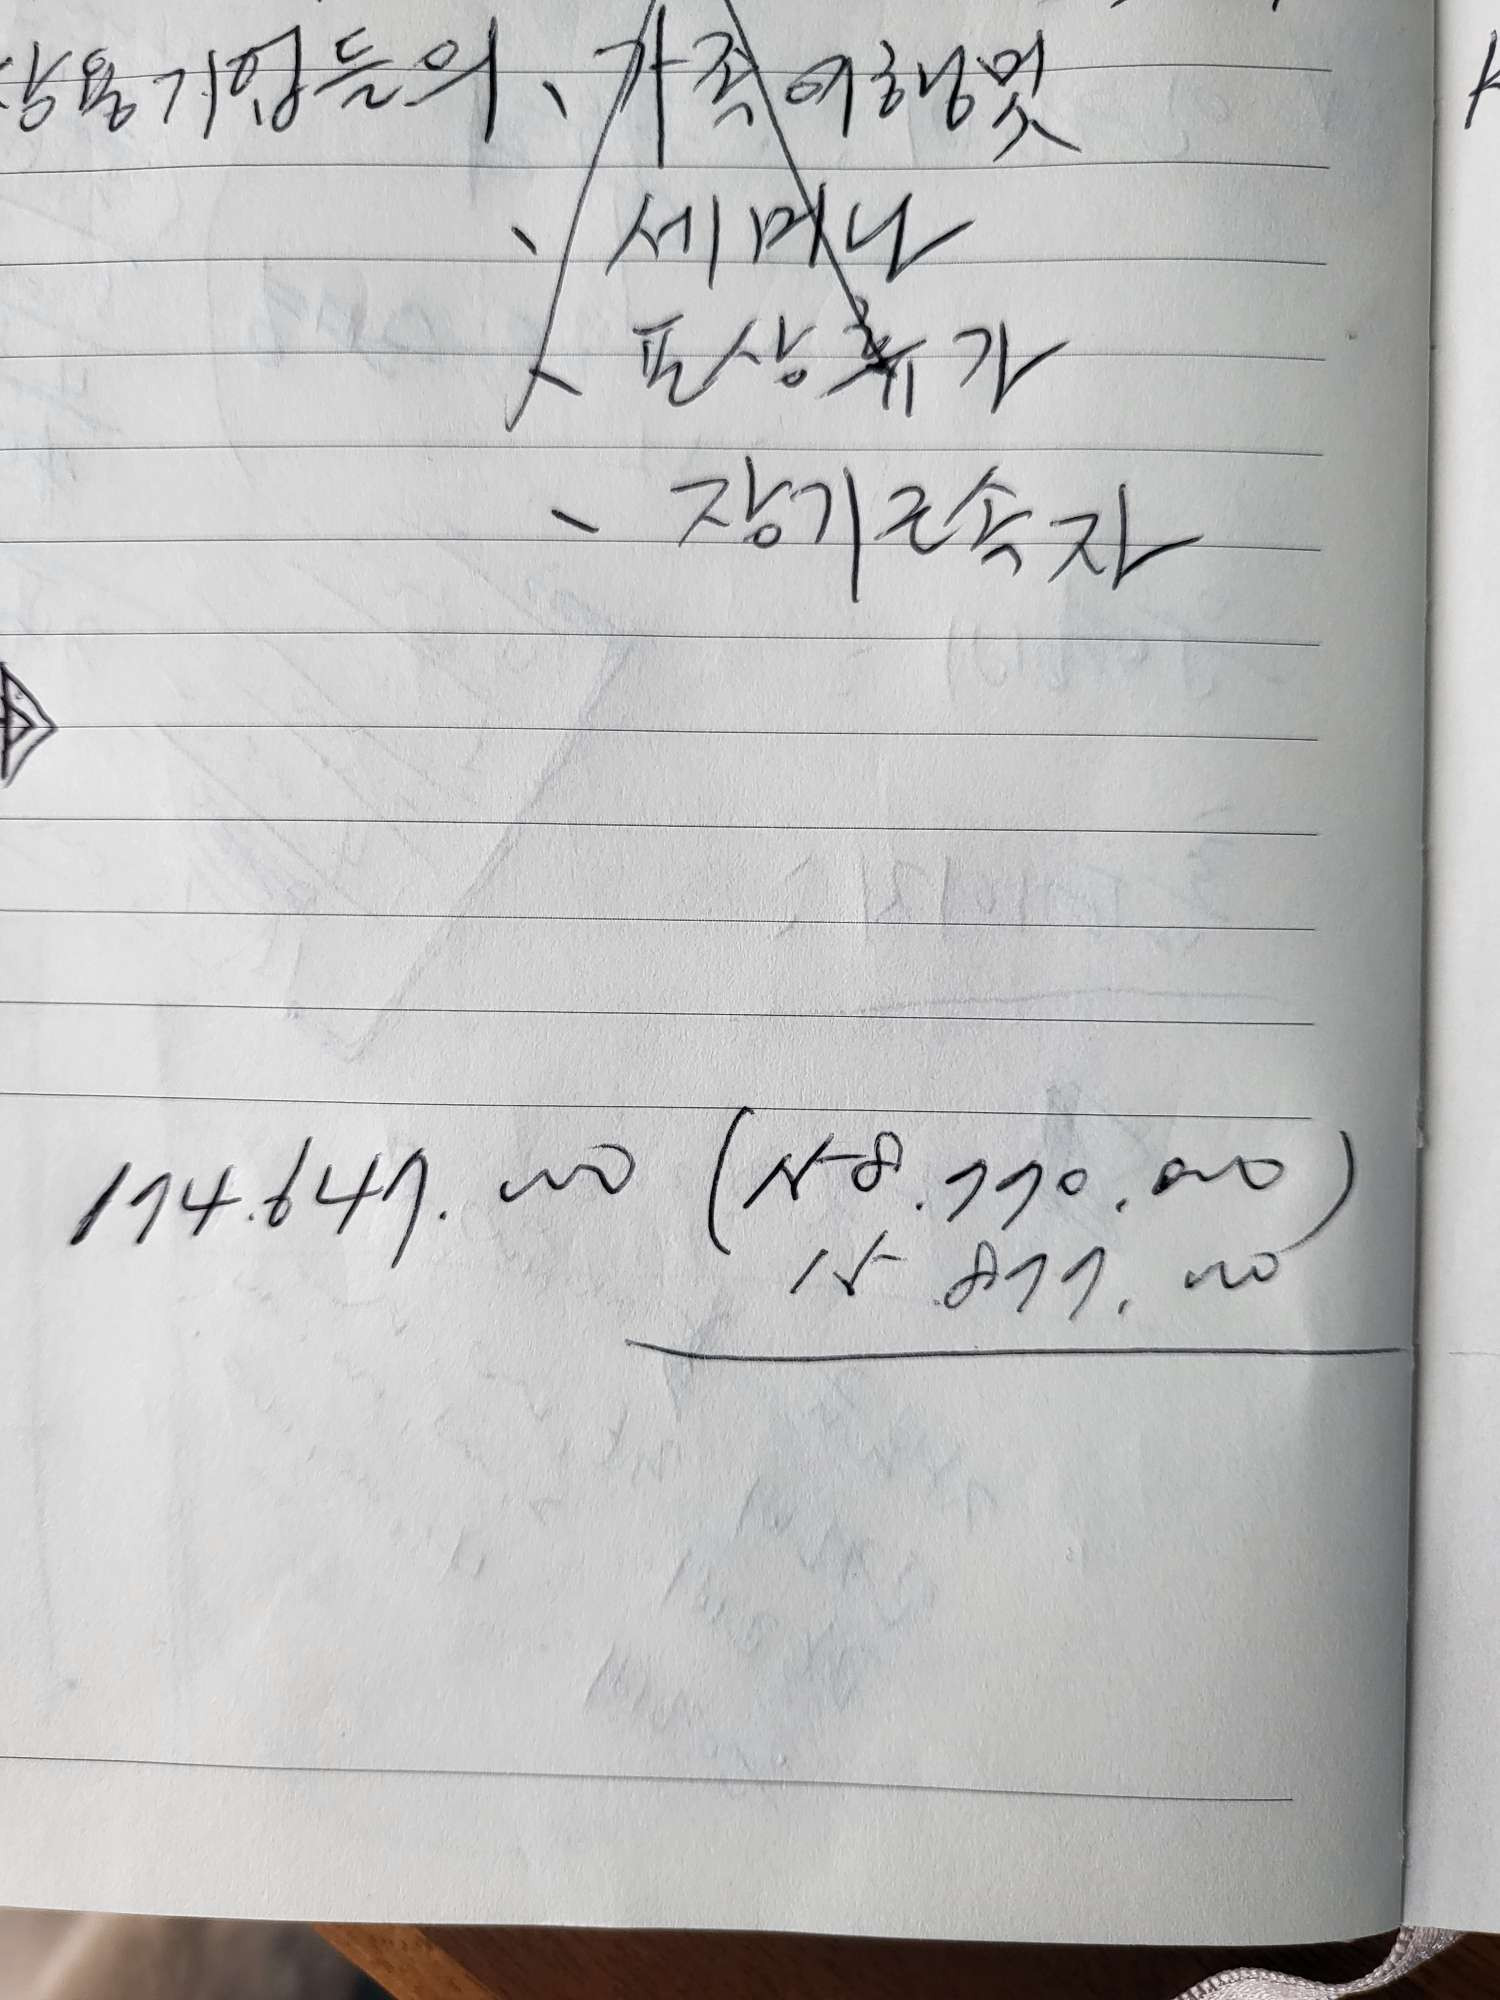 상용기업들의 、 가족여행및
、 세미나
、 포상휴가
、 장기근속자
174.647.000 (사8.770.000)
사 877.000